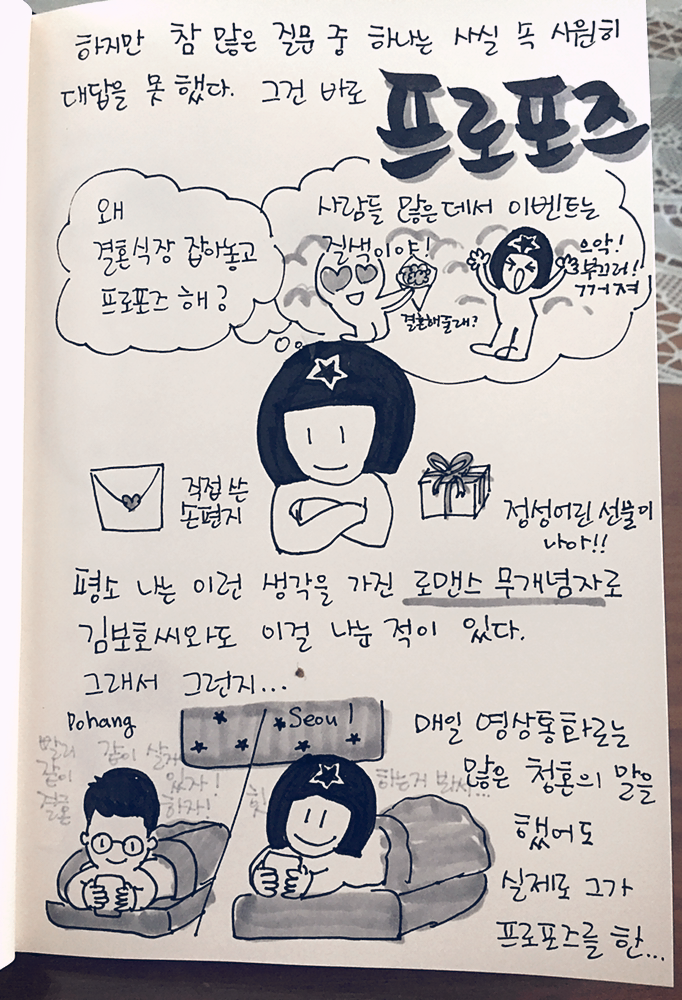 하지만 참 많은 질문 중 하나는 사실 속 시원히
대답을 못 했다. 그건 바로 프로포즈
왜
결혼식장 잡아놓고
프로포즈 해?
사람들 많은데서 이벤트는
질색이야!
결혼해줄래?
으악!
부끄러!!
꺼져
직접 쓴
손편지
정성어린 선물이
나아!!
평소 나는 이런 생각을 가진 로맨스 무개념자로
김보호씨와도 이걸 나눈 적이 있다.
그래서 그런지...
Pohang
Seoul
빨리
같이
결혼
같이 살자
있자!
하자!
하는거 봐서...
매일 영상통화로는
많은 청혼의 말을
했어도
실제로 그가
프로포즈를 한...